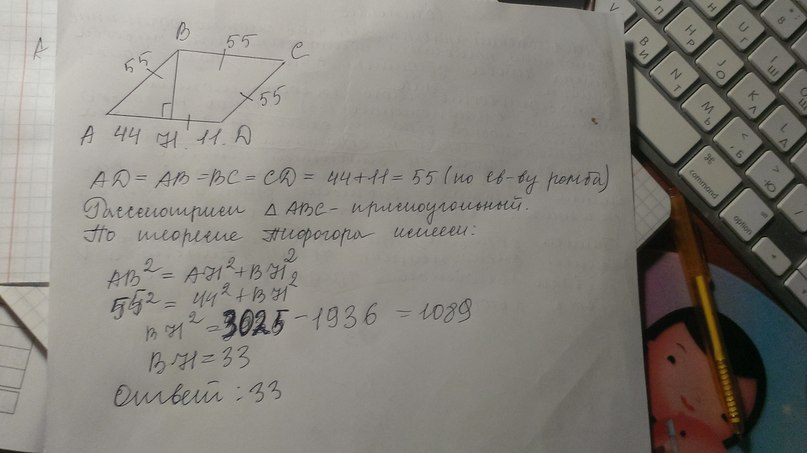 A
B
55
55
C
55
A 44 H. 11. D
AD = AB = BC = CD = 44+11 = 55 (по св-ву ромба)
Рассмотрим △ ABC - прямоугольный.
По теореме Пифогора имеем:
AB² = AH² + BH²
55² = 44² + BH²
BH² = 3025 - 1936 = 1089
BH = 33
Ответ: 33
command
option